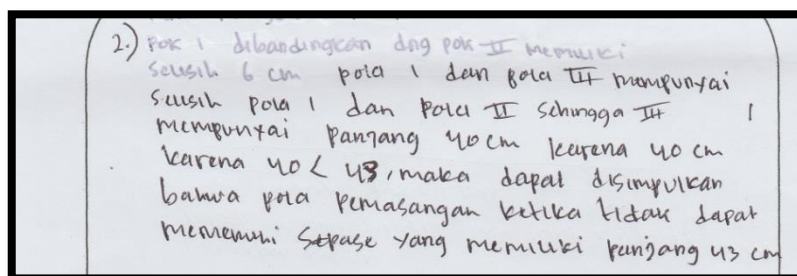 2.) Pola I dibandingkan dng pola II memiliki
Selisih 6 cm pola I dan pola III mempunyai
selisih pola I dan Pola II sehingga III I
mempunyai panjang 40 cm karena 40 cm
karena 40 < 43, maka dapat disimpulkan
bahwa pola pemasangan ketika tidak dapat
memenuhi yang memiliki panjang 43 cm